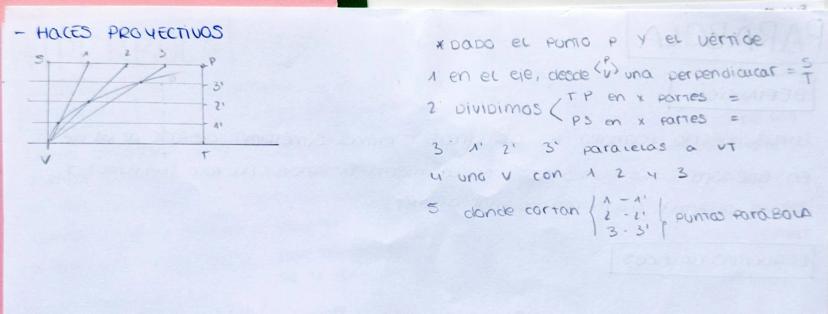 - HACES PROYECTIVOS
S 1 2 3 P
3'
2'
1'
V T
* DADO el PUNTO P y el vértice
1 en el eje, desde (P V) una perpendicular = S T
2 DIVIDIMOS < TP en x partes =
PS en x partes =
3 1' 2' 3' paralelas a VT
4 uno V con 1 2 y 3
5 donde cortan { 1 - 1'
2 - 2'
3 - 3' } PUNTOS PARÁBOLA